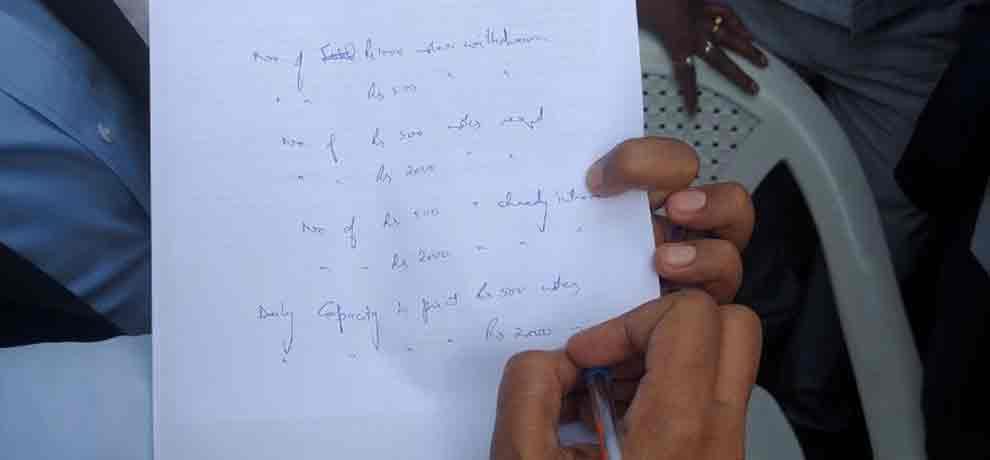 No. of Rs 1000 notes withdrawn
" " Rs 500 " "
No. of Rs 500 notes reqd
" " Rs 2000 " "
No. of Rs 500 " already
" " Rs 2000 " " "
Daily Capacity to print Rs 500 notes
" " " " Rs 2000